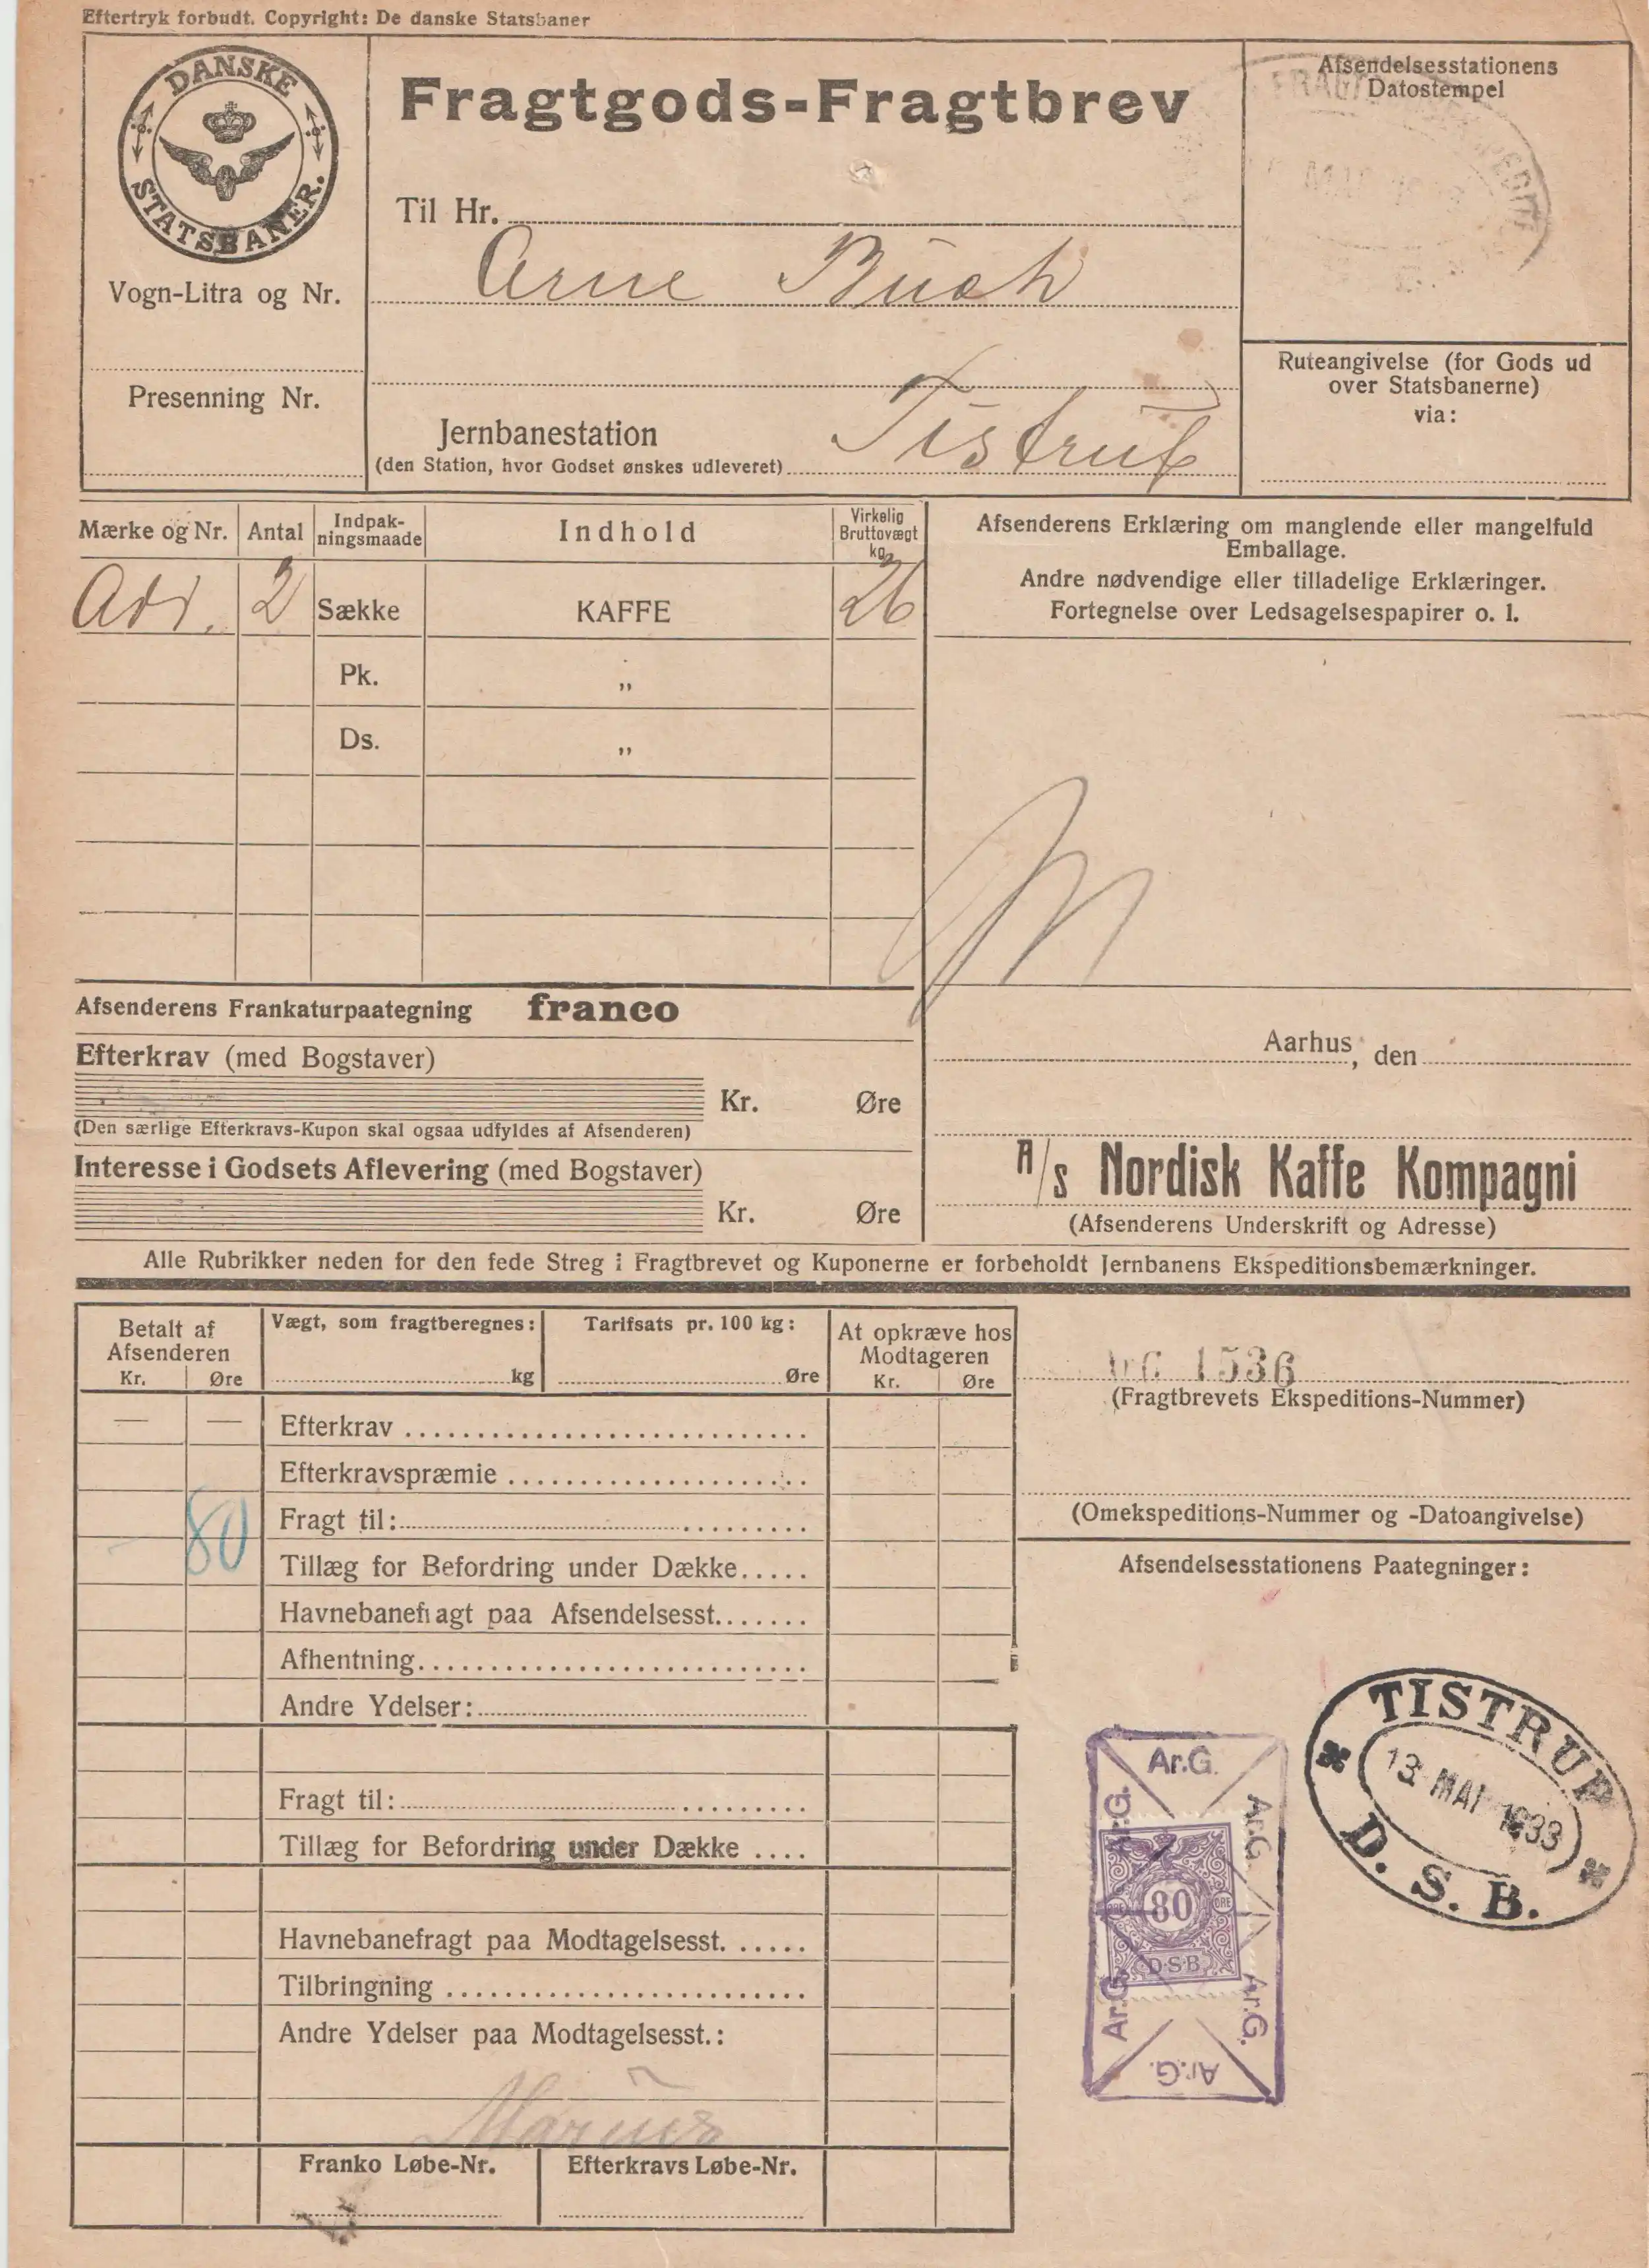 Eftertryk forbudt. Copyright: De danske Statsbaner
DANSKE
STATSBANER.
Vogn-Litra og Nr.
Presenning Nr.
Fragtgods-Fragtbrev
Til Hr.
Arne Buch
Jernbanestation
(den Station, hvor Godset ønskes udleveret)
Tistrup
Afsendelsesstationens
Datostempel
Ruteangivelse (for Gods ud
over Statsbanerne)
via:
Mærke og Nr. Antal Indpak-ningsmaade Indhold Virkelig Bruttovægt kg
Adr. 2 Sække KAFFE 26
Pk. „
Ds. „
Afsenderens Erklæring om manglende eller mangelfuld
Emballage.
Andre nødvendige eller tilladelige Erklæringer.
Fortegnelse over Ledsagelsespapirer o. l.
Afsenderens Frankaturpaategning franco
Efterkrav (med Bogstaver)
Kr. Øre
(Den særlige Efterkravs-Kupon skal ogsaa udfyldes af Afsenderen)
Interesse i Godsets Aflevering (med Bogstaver)
Kr. Øre
Aarhus, den
A/s Nordisk Kaffe Kompagni
(Afsenderens Underskrift og Adresse)
Alle Rubrikker neden for den fede Streg i Fragtbrevet og Kuponerne er forbeholdt Jernbanens Ekspeditionsbemærkninger.
Betalt af
Afsenderen
Kr. Øre
Vægt, som fragtberegnes:
kg
Tarifsats pr. 100 kg:
Øre
At opkræve hos
Modtageren
Kr. Øre
— — Efterkrav
Efterkravspræmie
80 Fragt til:
Tillæg for Befordring under Dække
Havnebanefragt paa Afsendelsesst.
Afhentning
Andre Ydelser:
Fragt til:
Tillæg for Befordring under Dække
Havnebanefragt paa Modtagelsesst.
Tilbringning
Andre Ydelser paa Modtagelsesst.:
Marius
Franko Løbe-Nr. Efterkravs Løbe-Nr.
1536
(Fragtbrevets Ekspeditions-Nummer)
(Omekspeditions-Nummer og -Datoangivelse)
Afsendelsesstationens Paategninger:
TISTRUP
13 MAI 1933
D. S. B.
Ar.G.
Ar.G. Ar.G.
80
ØRE ØRE
D·S·B
Ar.G. Ar.G.
Ar.G.